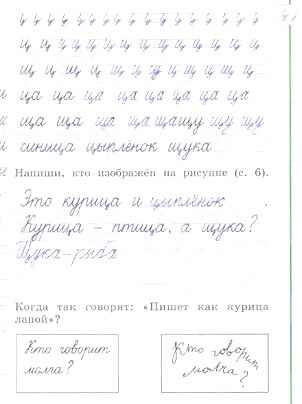 ц ц ц ц ц ц ц ц ц ц ц ц ц ц
щ щ щ щ щ щ щ щ щ щ щ
ца ца ца ца ца ца ца ца
ща ща ща ща щащу щу щу
синица цыплёнок щука
Напиши, кто изображён на рисунке (с. 6).
Это курица и цыплёнок.
Курица – птица, а щука?
Щука – рыба
Когда так говорят: «Пишет как курица
лапой»?
Кто говорит
молча?
Кто говорит
молча?